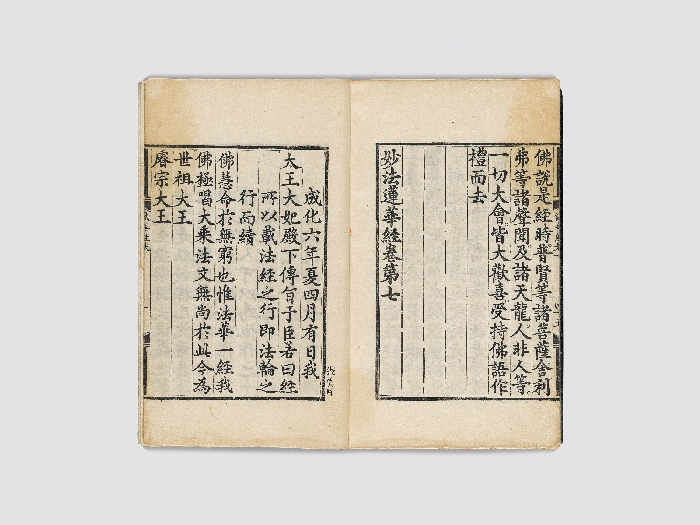 佛說是經時普賢等諸菩薩舍利
弗等諸聲聞及諸天龍人非人等
一切大會皆大歡喜受持佛語作
禮而去
妙法蓮華經卷第七
成化六年夏四月有日我
大王大妃殿下傳旨于臣若曰經
所以載法經之行即法輪之
行而續
佛慧命於無窮也惟法華一經我
佛極唱大乘法文無尚於此今為
世祖大王
睿宗大王